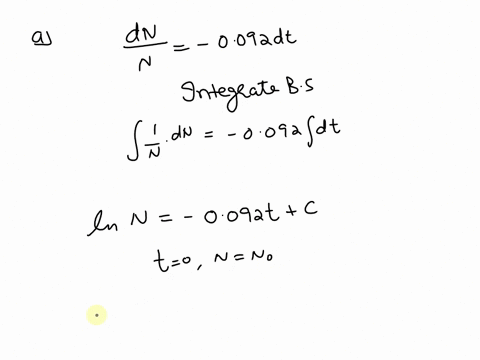 a) dN/N = - 0.092dt
Integrate B.S
∫ 1/N . dN = - 0.092 ∫ dt
ln N = - 0.092t + C
t=0, N = N₀